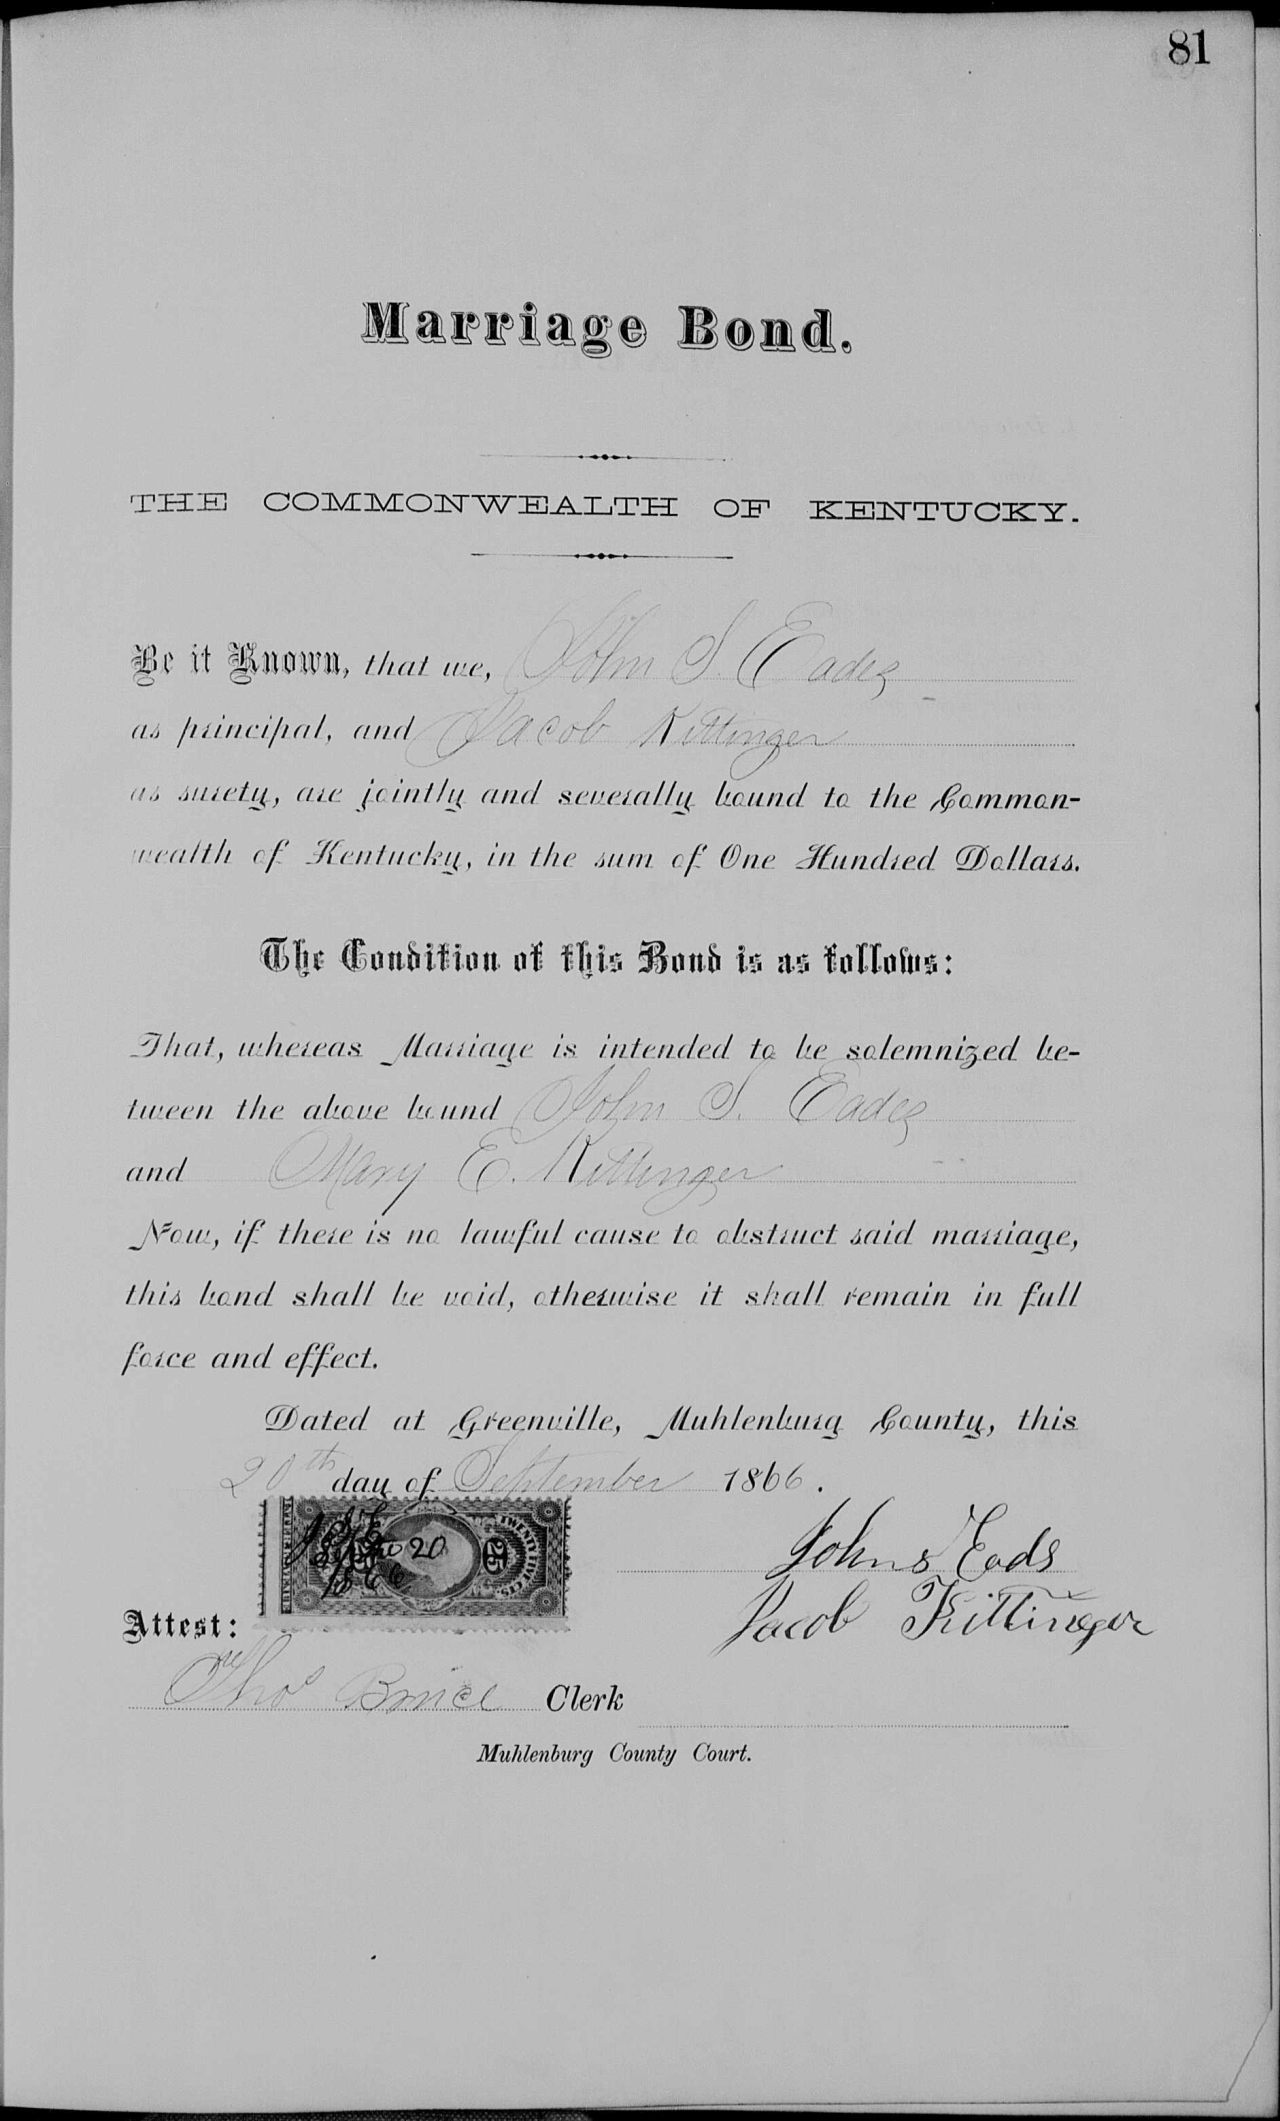 81
Marriage Bond.
THE COMMONWEALTH OF KENTUCKY.
Be it Known, that we, John S. Eades
as principal, and Jacob Kittinger
as surety, are jointly and severally bound to the Common-
wealth of Kentucky, in the sum of One Hundred Dollars.
The Condition of this Bond is as follows:
That, whereas Marriage is intended to be solemnized be-
tween the above bound John S. Eades
and Mary E. Kittinger
Now, if there is no lawful cause to obstruct said marriage,
this bond shall be void, otherwise it shall remain in full
force and effect.
Dated at Greenville, Muhlenburg County, this
20th day of September 1866.
TWENTY FIVE CTS.
25
20
1866
John S Eads
Jacob Kittinger
Attest:
Thos Bruce Clerk
Muhlenburg County Court.